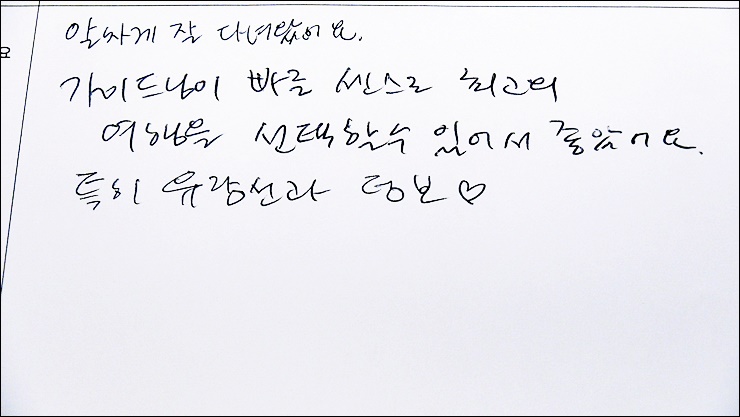 알차게 잘 다녀왔어요.
가이드님이 빠른 센스로 최고의
여행을 선택할수 있어서 좋았어요.
특히 유람선과 덩보♡
요